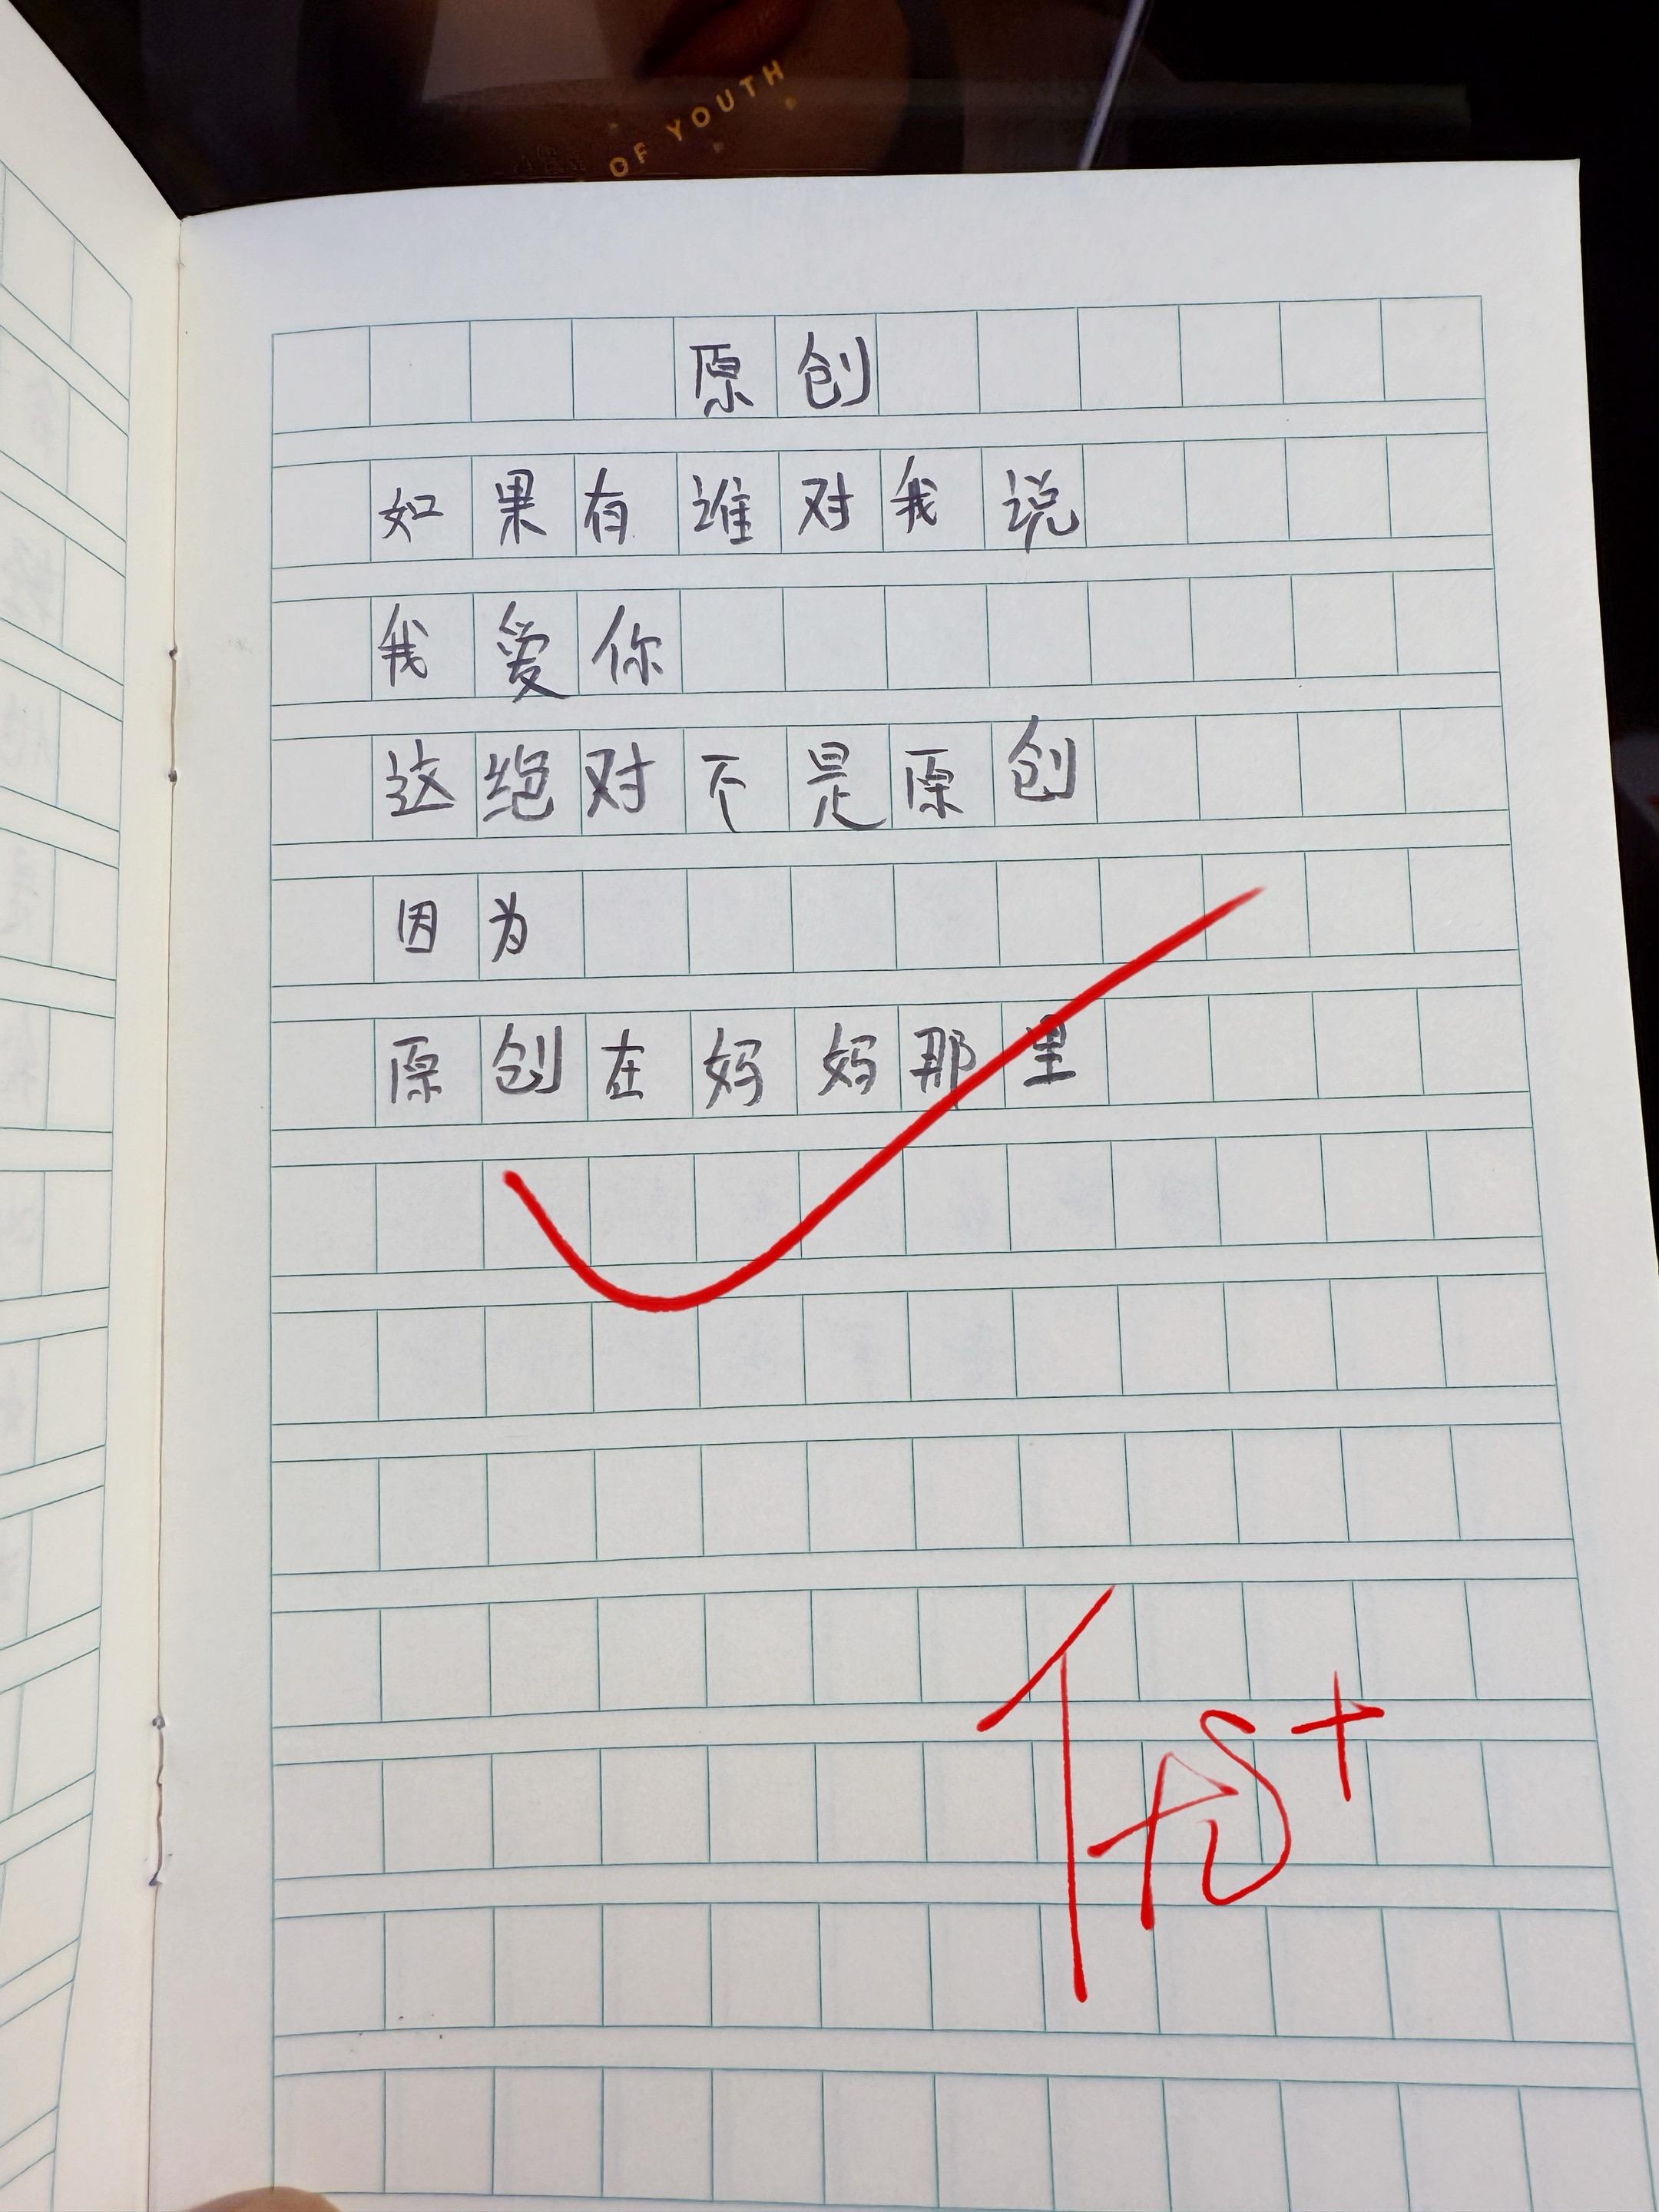 OF YOUTH
原创
如果有谁对我说
我爱你
这绝对不是原创
因为
原创在妈妈那里
优+